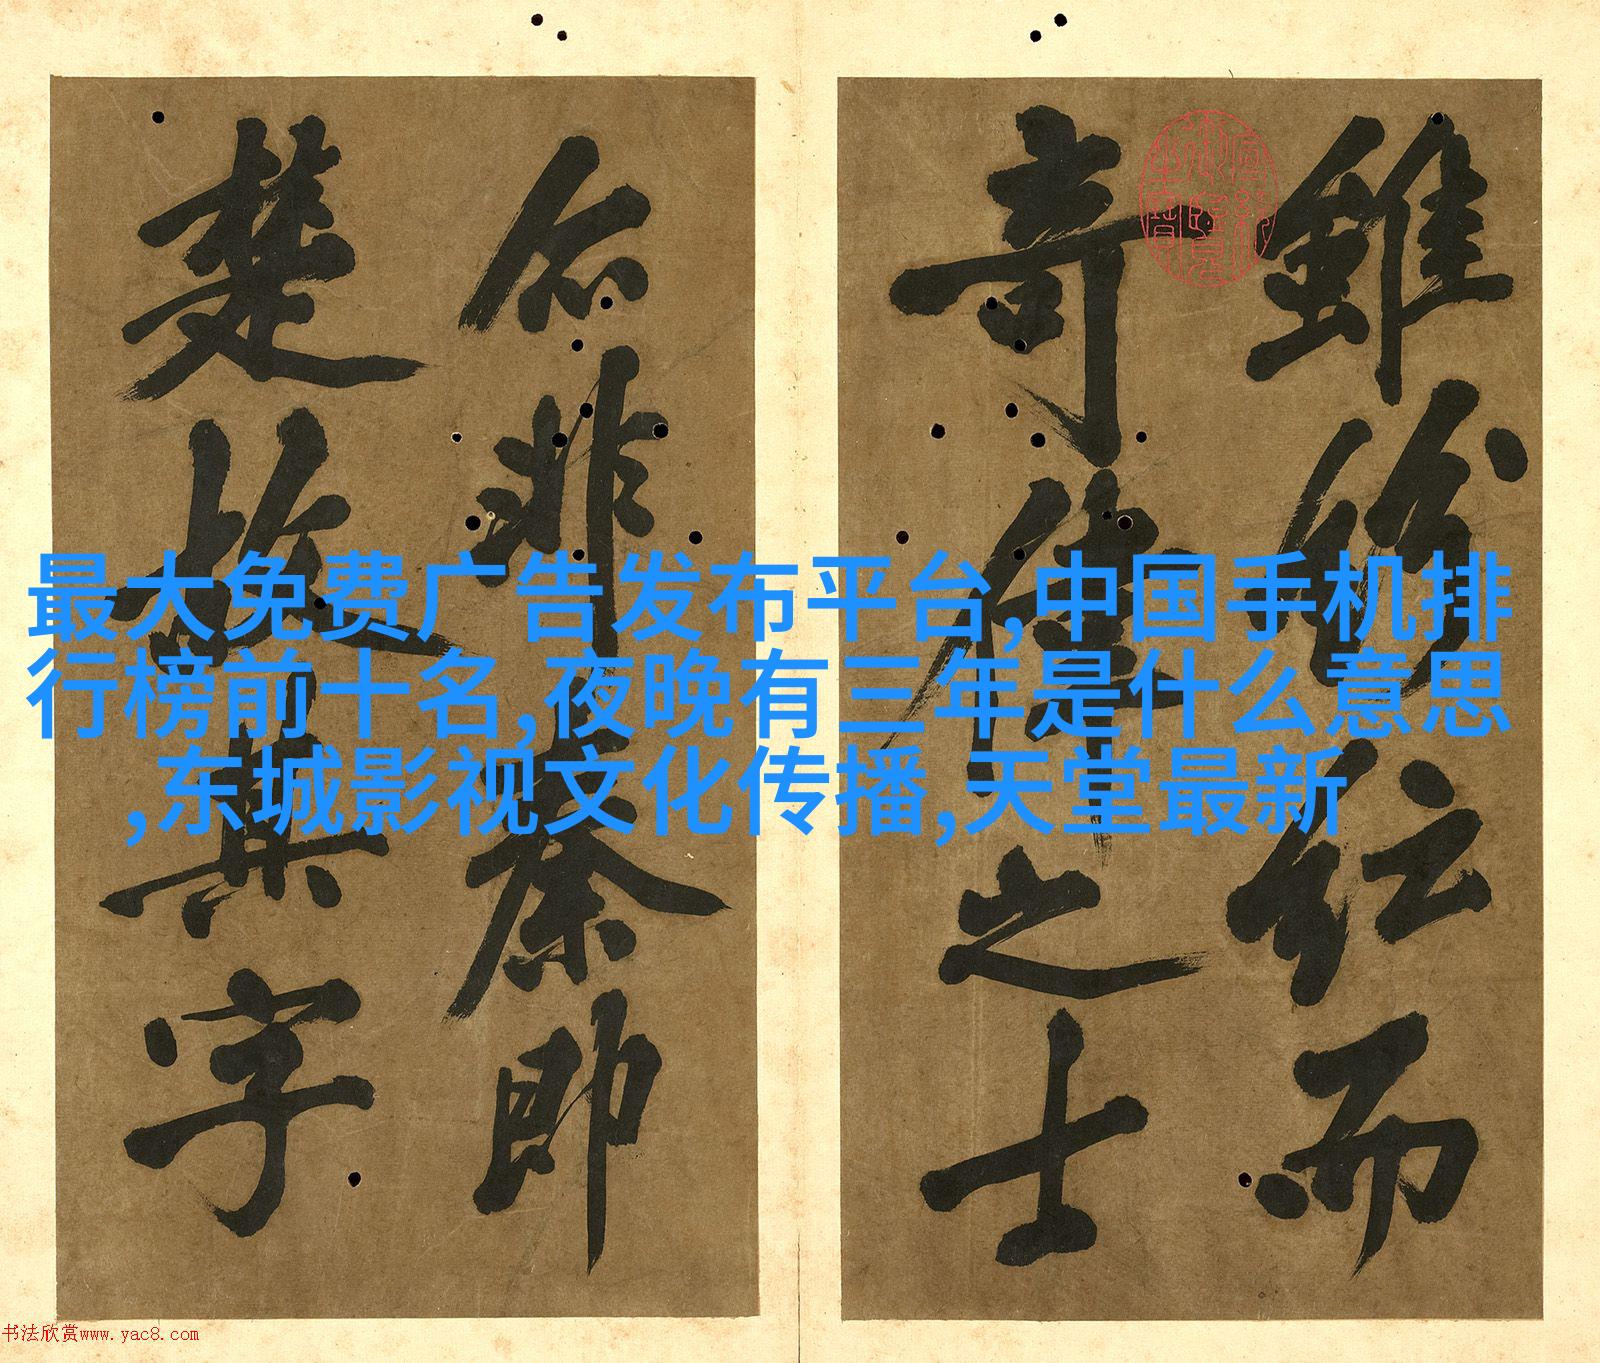 雖紛紜而
奇偉之士
非秦即
楚故其字
最大免费广告发布平台,中国手机排
行榜前十名,夜晚有三年是什么意思
,东城影视文化传播,天堂最新
书法欣赏www.yac8.com